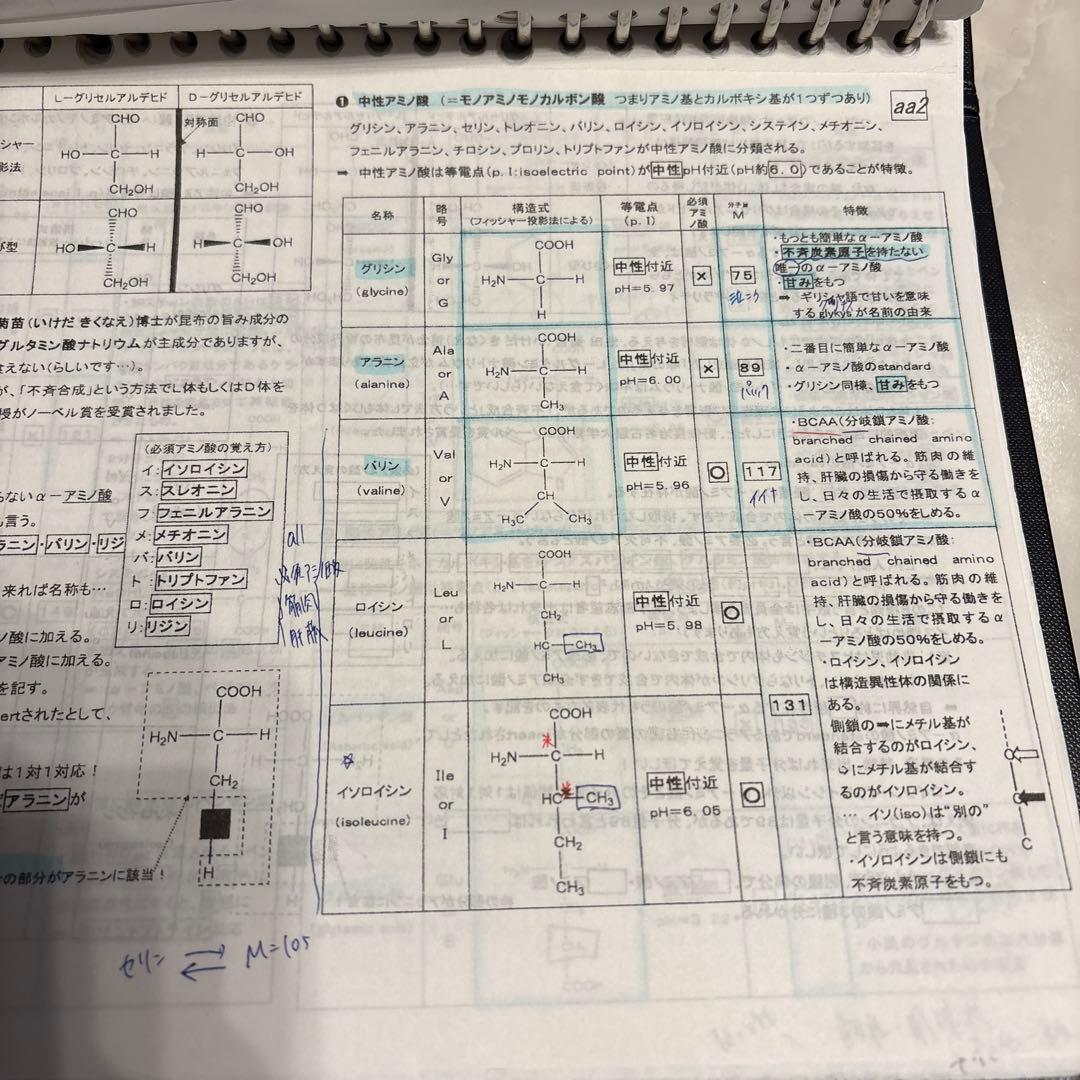 L－グリセルアルデヒド
D－グリセルアルデヒド
シャー
影法
CHO
HO C H
CH₂OH
対称面
CHO
H C OH
CH₂OH
び型
CHO
HO C H
CH₂OH
CHO
H C OH
CH₂OH
菊苗（いけだ きくなえ）博士が昆布の旨み成分の
グルタミン酸ナトリウムが主成分でありますが、
えない（らしいです…）。
が、「不斉合成」という方法でL体もしくはD体を
授がノーベル賞を受賞されました。
（必須アミノ酸の覚え方）
イ：イソロイシン
ス：スレオニン
フ：フェニルアラニン
メ：メチオニン
バ：バリン
ト：トリプトファン
ロ：ロイシン
リ：リジン
らないα－アミノ酸
も言う。
ラニン・バリン・リジ
来れば名称も…
ノ酸に加える。
アミノ酸に加える。
を記す。
ertされたとして、
は1対1対応！
アラニンが
の部分がアラニンに該当！
COOH
H₂N C H
CH₂
H
all
筋肉
セリン M=105
❶ 中性アミノ酸 （＝モノアミノモノカルボン酸 つまりアミノ基とカルボキシ基が1つずつあり）
aa2
グリシン、アラニン、セリン、トレオニン、バリン、ロイシン、イソロイシン、システイン、メチオニン、
フェニルアラニン、チロシン、プロリン、トリプトファンが中性アミノ酸に分類される。
➡ 中性アミノ酸は等電点（p.I:isoelectric point）が中性pH付近（pH約6.0）であることが特徴。
名称
略号
構造式
（フィッシャー投影法による）
等電点
（p.I）
必須アミノ酸
分子量
M
特徴
グリシン
(glycine)
Gly
or
G
COOH
H₂N C H
H
中性付近
pH＝5.97
×
75
・もっとも簡単なα－アミノ酸
・不斉炭素原子を持たない
唯一のα－アミノ酸
・甘みをもつ
➡ ギリシャ語で甘いを意味
するglykysが名前の由来
アラニン
(alanine)
Ala
or
A
COOH
H₂N C H
CH₃
中性付近
pH＝6.00
×
89
パック
・二番目に簡単なα－アミノ酸
・α－アミノ酸のstandard
・グリシン同様、甘みをもつ
バリン
(valine)
Val
or
V
COOH
H₂N C H
CH
H₃C CH₃
中性付近
pH＝5.96
○
117
イイナ
・BCAA（分岐鎖アミノ酸：
branched chained amino
acid）と呼ばれる。筋肉の維
持、肝臓の損傷から守る働きを
し、日々の生活で摂取するα
－アミノ酸の50%をしめる。
ロイシン
(leucine)
Leu
or
L
COOH
H₂N C H
CH₂
HC CH₃
CH₃
中性付近
pH＝5.98
○
・BCAA（分岐鎖アミノ酸：
branched chained amino
acid）と呼ばれる。筋肉の維
持、肝臓の損傷から守る働きを
し、日々の生活で摂取するα
－アミノ酸の50%をしめる。
131
・ロイシン、イソロイシン
は構造異性体の関係に
ある。
側鎖の➡にメチル基が
結合するのがロイシン、
⇨にメチル基が結合す
るのがイソロイシン。
… イソ(iso)は“別の”
と言う意味を持つ。
・イソロイシンは側鎖にも
不斉炭素原子をもつ。
C
イソロイシン
(isoleucine)
Ile
or
I
COOH
H₂N C H
HC CH₃
CH₂
CH₃
中性付近
pH＝6.05
○